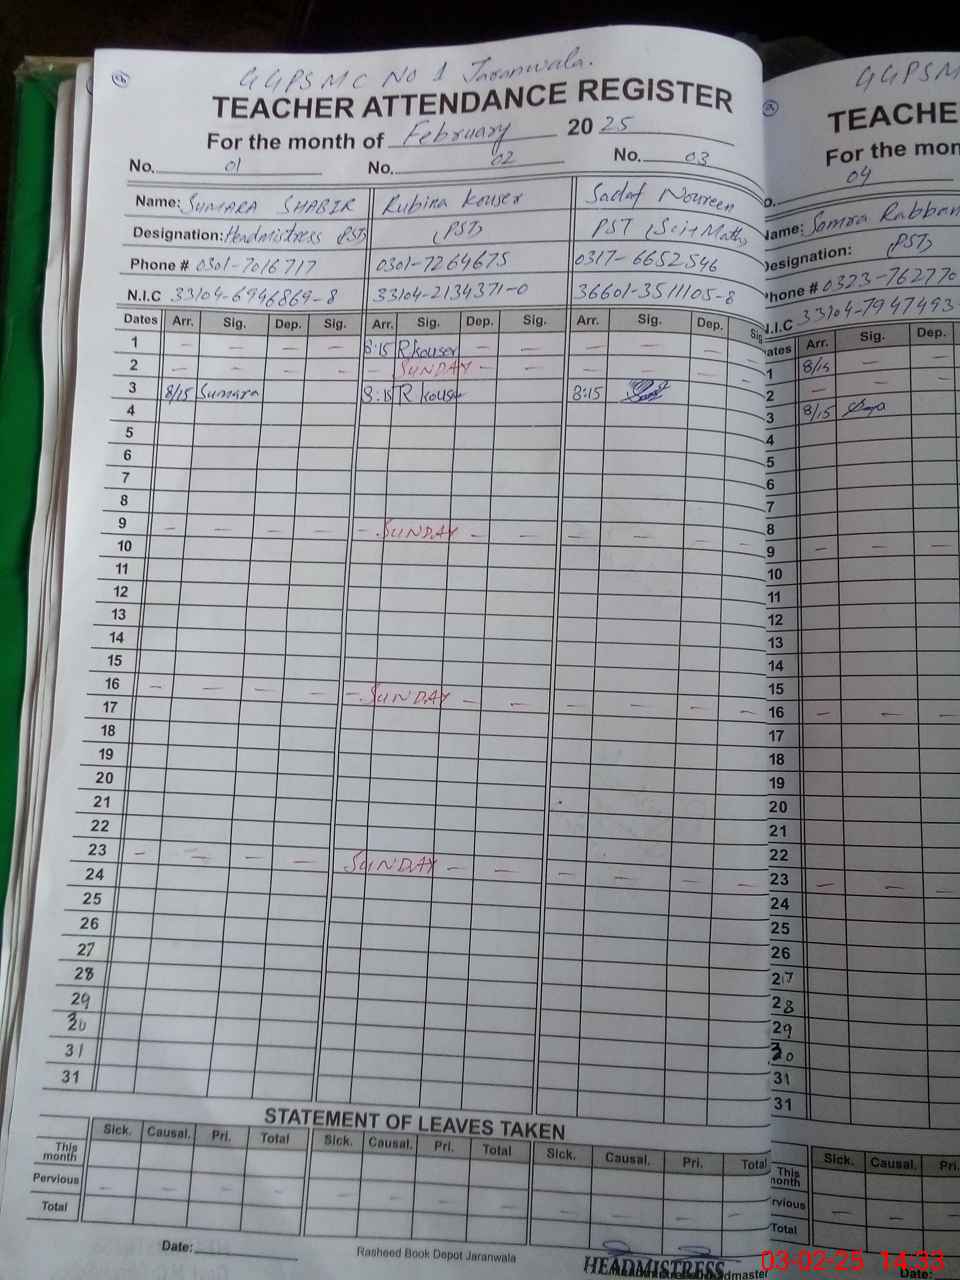 GGPS MC No 1 Jaranwala.
TEACHER ATTENDANCE REGISTER
For the month of February 2025
No. 01 No. 02 No. 03
Name: SUMARA SHABIR Rubina Kouser Sadaf Noureen
Designation: Headmistress PST (PST) PST (Sci+Math)
Phone # 0301-7016717 0301-7264675 0317-6652546
N.I.C 33104-6946869-8 33104-2134371-0 36601-3511105-8
Dates Arr. Sig. Dep. Sig. Arr. Sig. Dep. Sig. Arr. Sig. Dep. Sig
1 - - - - 8:15 R kouser - - - -
2 - - - - - SUNDAY - - - - - -
3 8/15 Sumara 8:15 R kouser 8:15
4
5
6
7
8
9 - - - - - SUNDAY - - - - - -
10
11
12
13
14
15
16 - - - - - SUNDAY - - - - - -
17
18
19
20
21
22
23 - - - - SUNDAY - - - - - -
24
25
26
27
28
29
30
31
31
STATEMENT OF LEAVES TAKEN
Sick. Causal. Pri. Total Sick. Causal. Pri. Total Sick. Causal. Pri. Total
This month
Pervious - - - - - - - - - - - -
Total
Date:
Rasheed Book Depot Jaranwala
HEADMISTRESS
GGPSM
TEACHE
For the mon
04
Name: Samra Rabban
Designation: (PST)
Phone # 0323-762770
N.I.C 33104-7947493-
ates Arr. Sig. Dep.
1 8/15 -
2 - - -
3 8/15
4
5
6
7
8
9 - - -
10
11
12
13
14
15
16 - - -
17
18
19
20
21
22
23 - - -
24
25
26
27
28
29
30
31
31
Sick. Causal. Pri.
This month
rvious - - -
Total
Date:
03-02-25 14:33